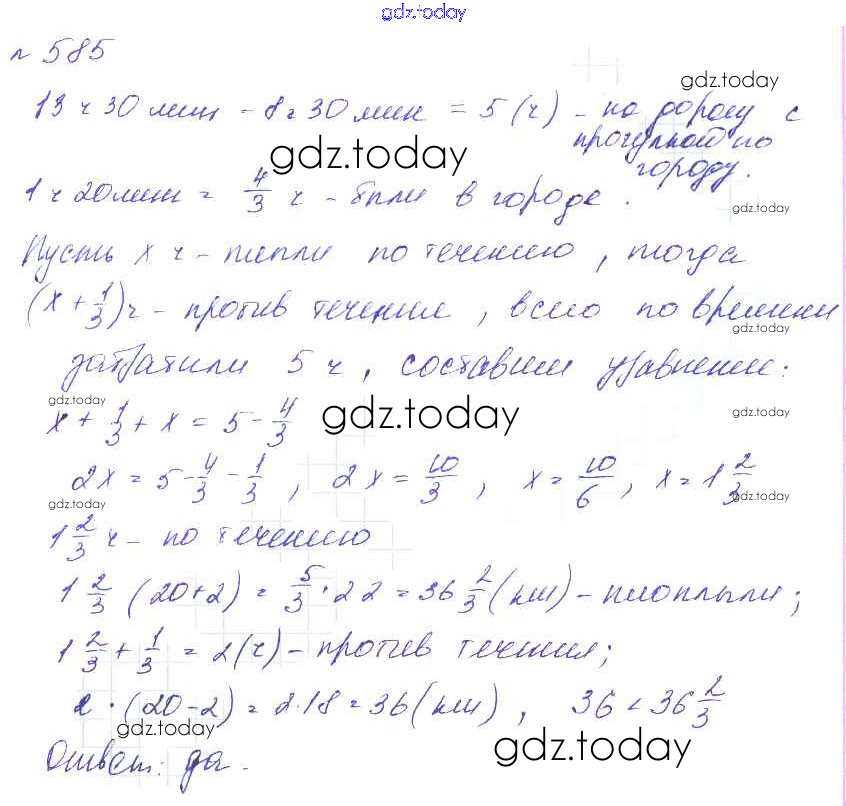 gdz.today
№ 585
gdz.today
13 ч 30 мин - 8 ч 30 мин = 5 (ч) - на дорогу с
прогулкой по
городу.
gdz.today
1 ч 20 мин = 4/3 ч - были в городе.
gdz.today
Пусть x ч - плыли по течению, тогда
(x + 1/3) ч - против течения, всего по времени
gdz.today
затратили 5 ч, составим уравнение:
gdz.today
x + 1/3 + x = 5 - 4/3
gdz.today
gdz.today
2x = 5 - 4/3 - 1/3, 2x = 10/3, x = 10/6, x = 1 2/3
gdz.today
gdz.today
1 2/3 ч - по течению
1 2/3 (20+2) = 5/3 · 22 = 36 2/3 (км) - проплыли;
1 2/3 + 1/3 = 2 (ч) - против течения;
2 · (20-2) = 2·18 = 36 (км), 36 < 36 2/3
gdz.today
gdz.today
Ответ: да.